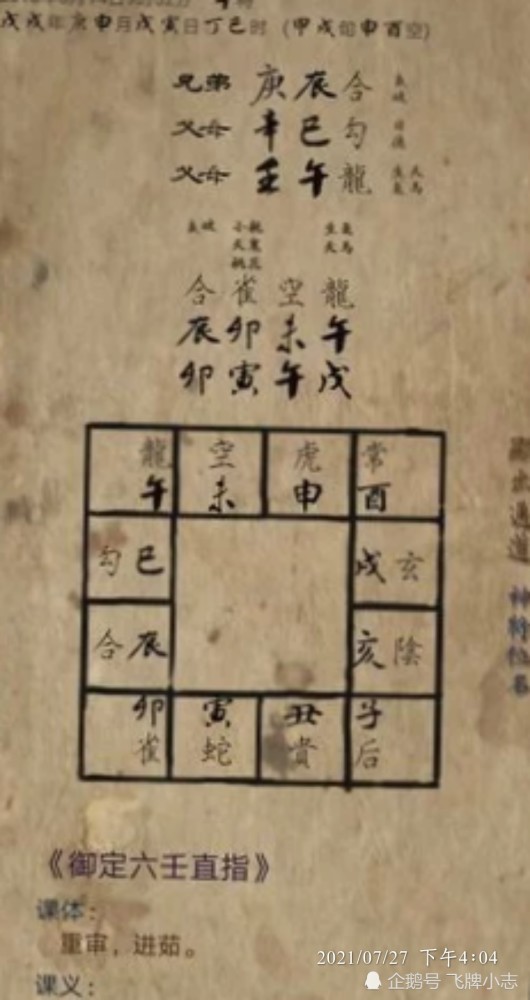 戊戌年庚申月戊寅日丁巳时 (甲戌旬申酉空)
兄弟 庚辰合
父母 辛巳勾
父母 壬午龍
合雀空龍
辰卯未午
卯寅午戌
龍 空 虎 常
午 未 申 酉
勾巳 戌玄
合辰 亥陰
卯 寅 丑 子
雀 蛇 貴 后
《御定六壬直指》
课体:
重审,进茹。
课义:
2021/07/27 下午4:04
企鹅号 飞牌小志